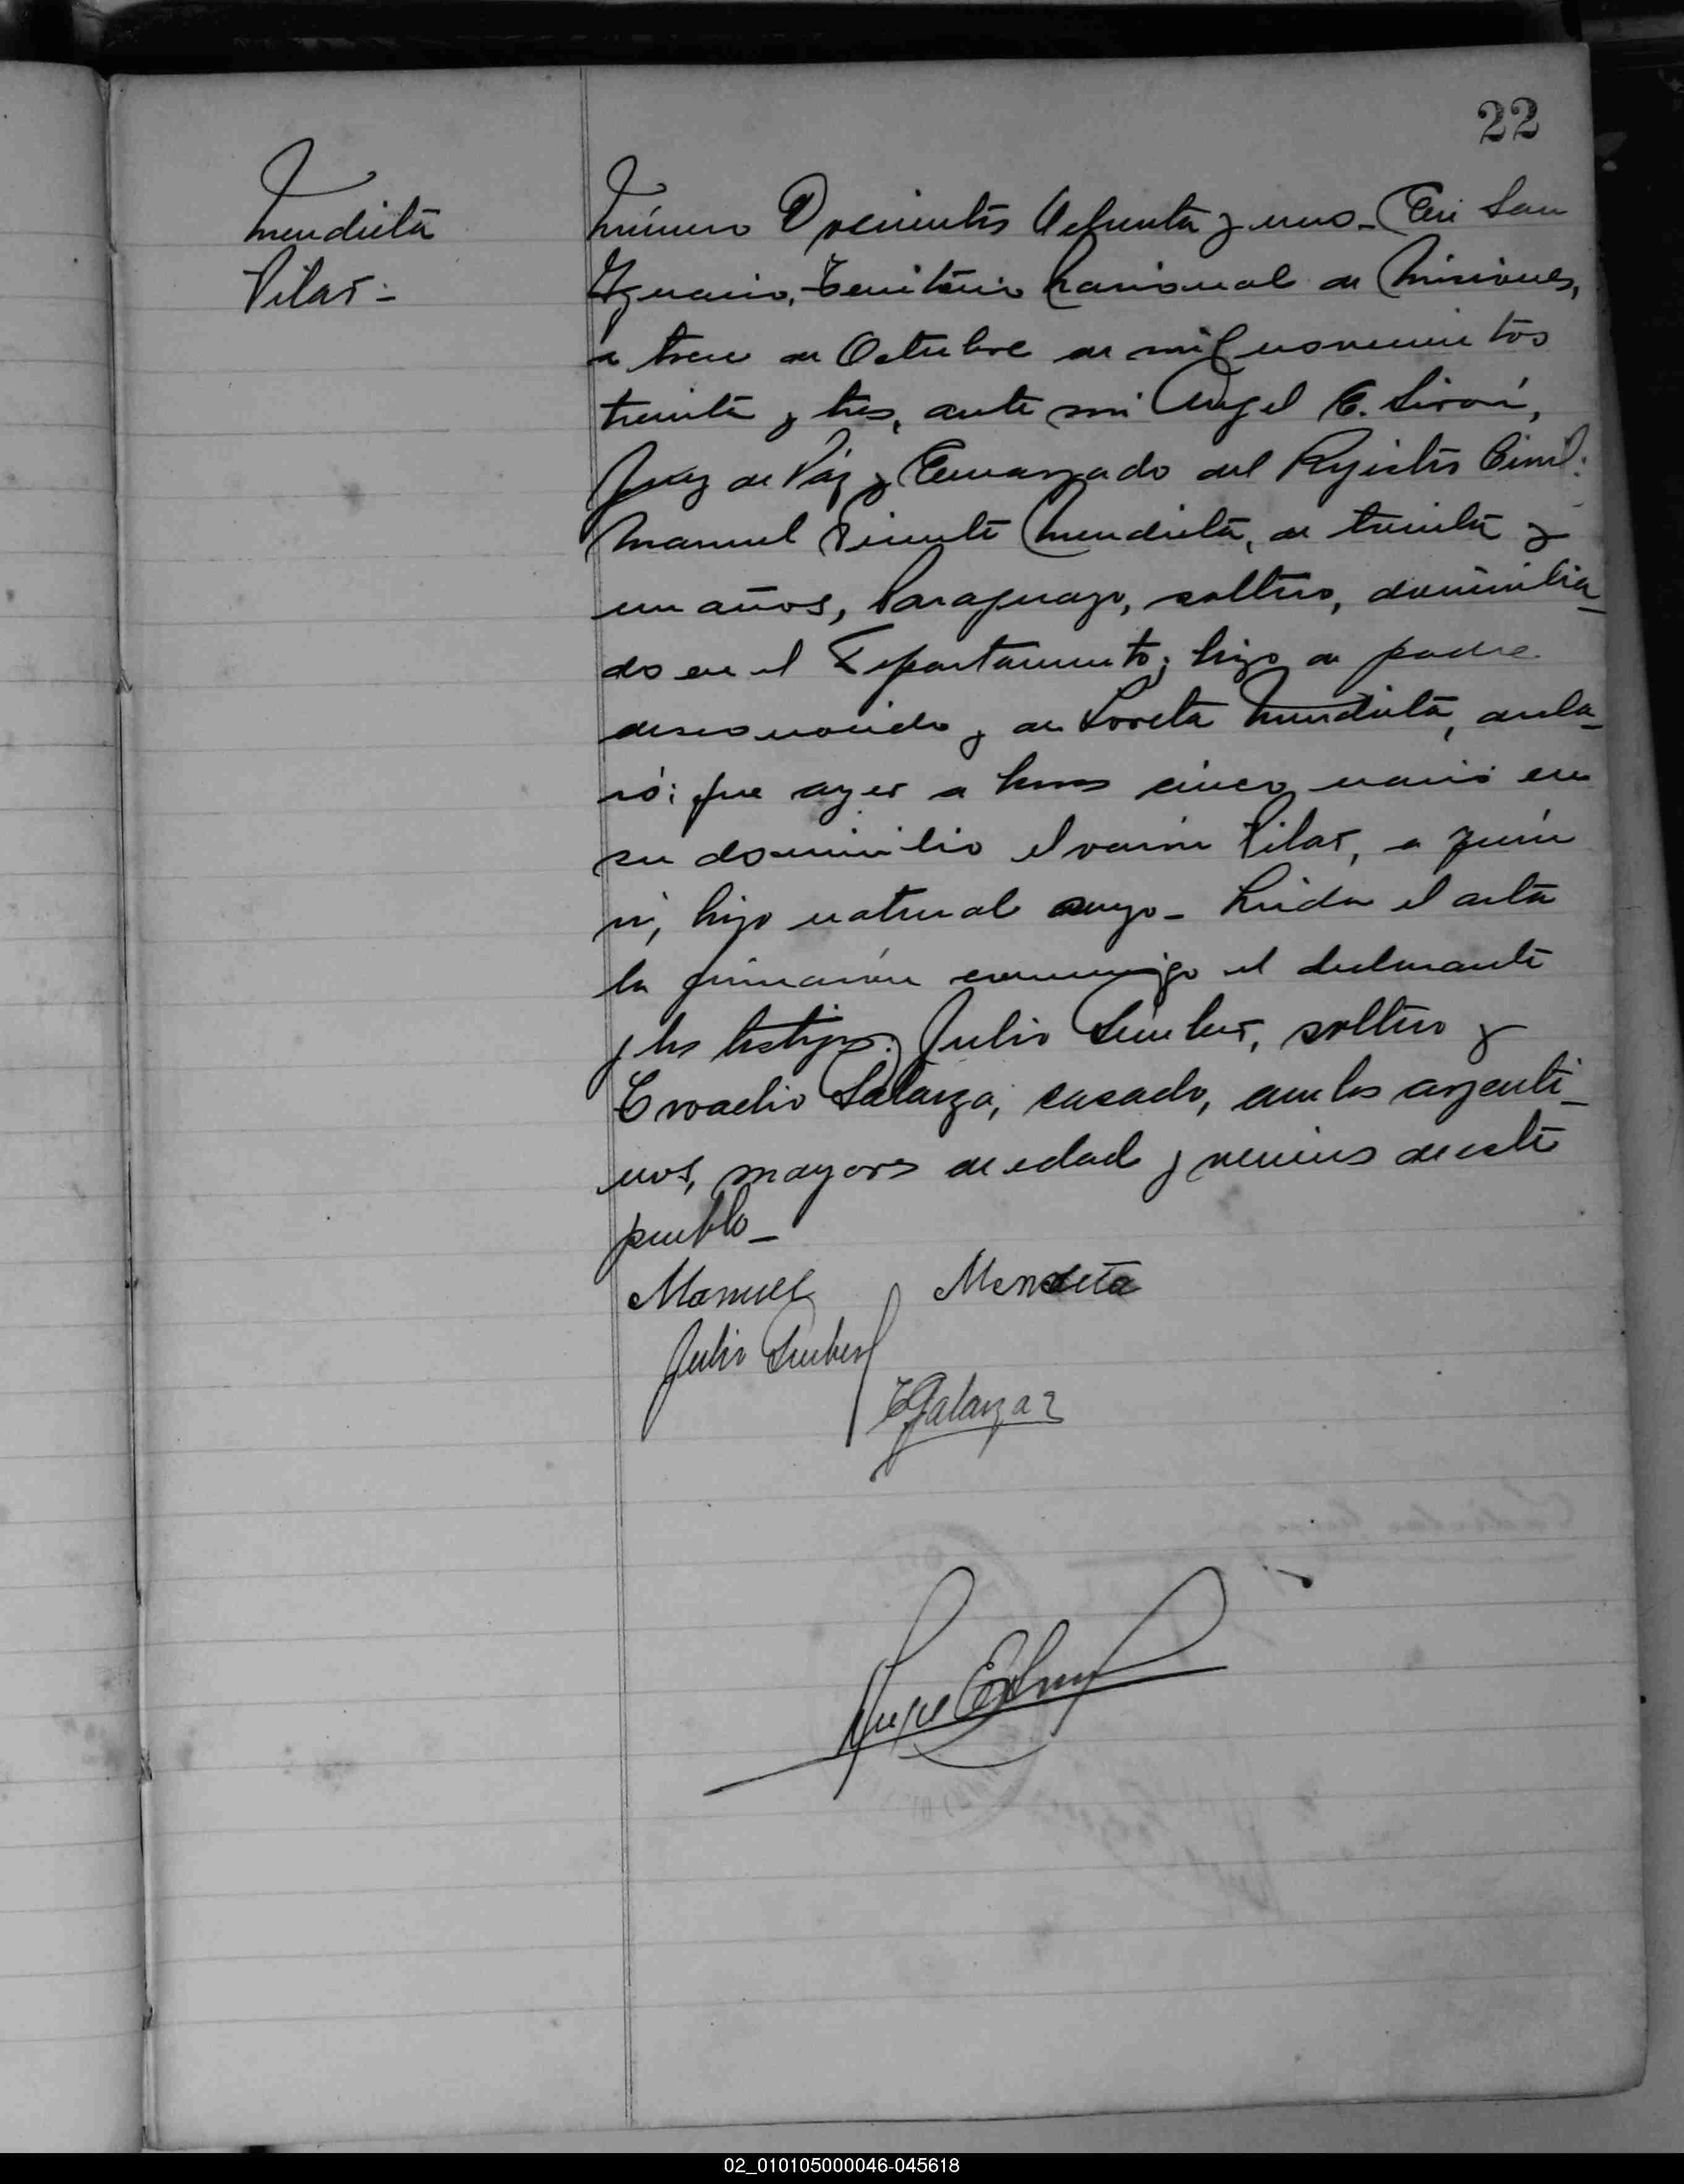 22
Mendieta
Pilar-
Número Doscientos Ochenta y uno_ En San
Ignacio, Territorio Nacional de Misiones,
a trece de Octubre de mil novecientos
treinta y tres, ante mi Angel C.
Juez de Páz y Encargado del Registro Civil:
Manuel Vicente Mendieta, de treinta y
un años, Paraguayo, soltero, domicilia_
do en el Departamento; hijo de padre
desconocido y de Loreta Mendieta, decla_
ró: que ayer a horas cinco nació en
su domicilio el varón Pilar, a quien
ví, hijo natural suyo_ Leida el acta
la firmaron conmigo el declarante
y los testigos: Julio, soltero y
Galarza, casado, ambos argenti_
nos, mayores de edad y vecinos de este
pueblo_
Manuel Mendieta
Julio
Galarza
02_010105000046-045618